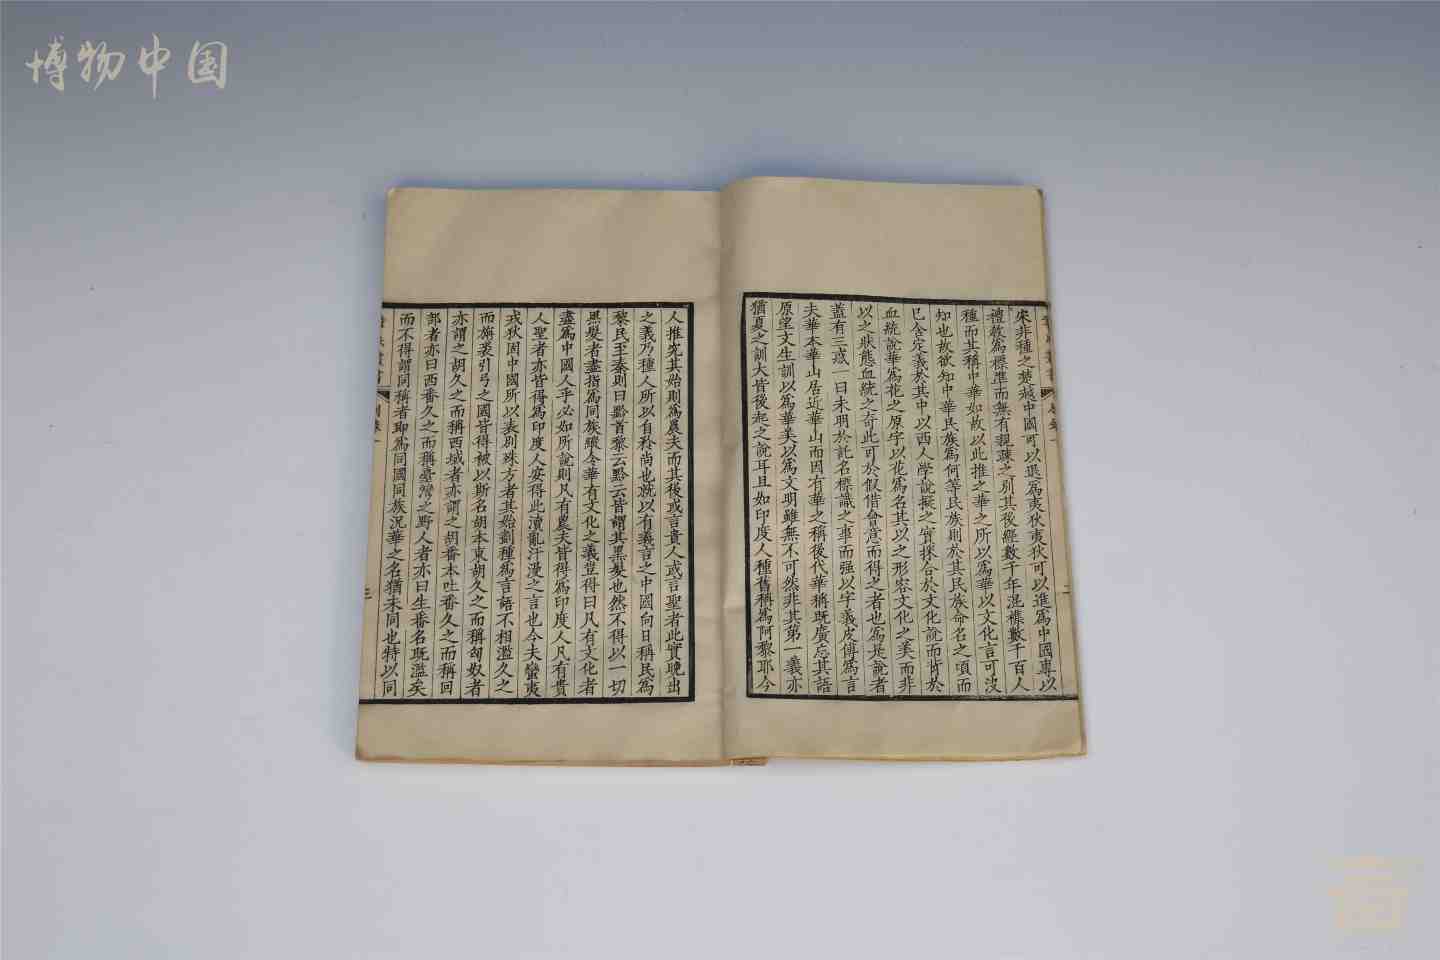 博物中国
宋非種之楚越中國可以退爲夷狄夷狄可以進爲中國專以
禮敎爲標準而無有親疎之別其後經數千年混襍數千百人
種而其稱中華如故以此推之華之所以爲華以文化言可沒
知也故欲知中華民族爲何等民族則於其民族命名之頃而
已含定義於其中以西人學說擬之實採合於文化說而背於
血統說華爲花之原字以花爲名其以之形容文化之美而非
以之狀態血統之奇此可於假借會意而得之者也爲是說者
蓋有三惑一曰未明於託名標識之事而强以字義皮傅爲言
夫華本華山居近華山而因有華之稱後代華稱旣廣忘其語
原望文生訓以爲華美以爲文明雖無不可然非其第一義亦
猶夏之訓大皆後起之說耳且如印度人種舊稱爲阿黎耶今
人推究其始則爲農夫而其後或言貴人或言聖者此實晚出
之義乃種人所以自矜尚也就以有義言之中國向日稱民爲
黎民至秦則曰黔首黎云黔云皆謂其黑髮也然不得以一切
黑髮者盡指爲同族縱令華有文化之義豈得曰凡有文化者
盡爲中國人乎必如所說則凡有農夫皆得爲印度人凡有貴
人聖者亦皆得爲印度人安得此瀆亂汗漫之言也今夫蠻夷
戎狄固中國所以表別殊方者其始劃種爲言語不相濫久之
而旃裘引弓之國皆得被以斯名胡本東胡久之而稱匈奴者
亦謂之胡久之而稱西域者亦謂之胡番本吐番久之而稱回
部者亦曰西番久之而稱臺灣之野人者亦曰生番名旣濫矣
而不得謂同稱者卽爲同國同族況華之名猶未同也特以同
別錄一
三